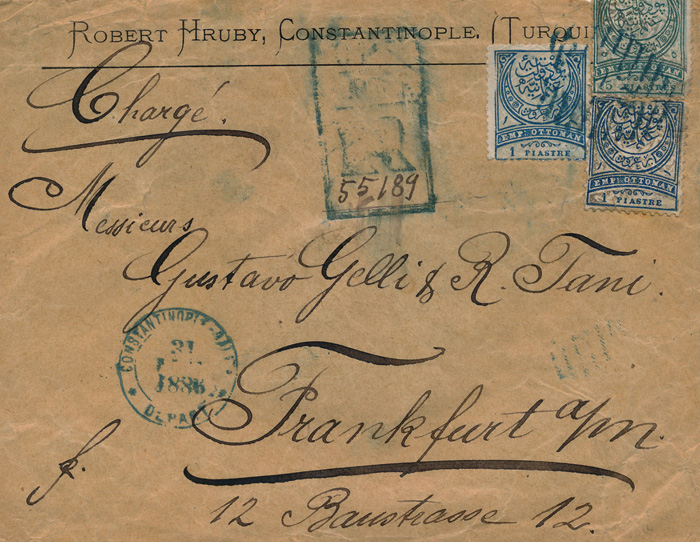 ROBERT HRUBY, CONSTANTINOPLE. (TURQUI
Chargé.
R
55189
EMP: OTTOMAN
1 PIASTRE
PIASTRE
EMP: OTTOMAN
1 PIASTRE
Messieurs
Gustavo Gelli & R. Tani.
CONSTANTINOPLE
21
1886
DEPART
Frankfurt a/m.
12 Baustrasse 12.